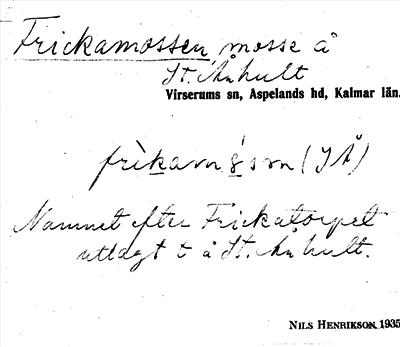 Frickamossen mosse å
St. Århult
Virserums sn, Aspelands hd, Kalmar län.
frìkamåsən (J Å)
Namnet efter Frickatorpet
utlagt t å St. Århult.
NILS HENRIKSON 1935